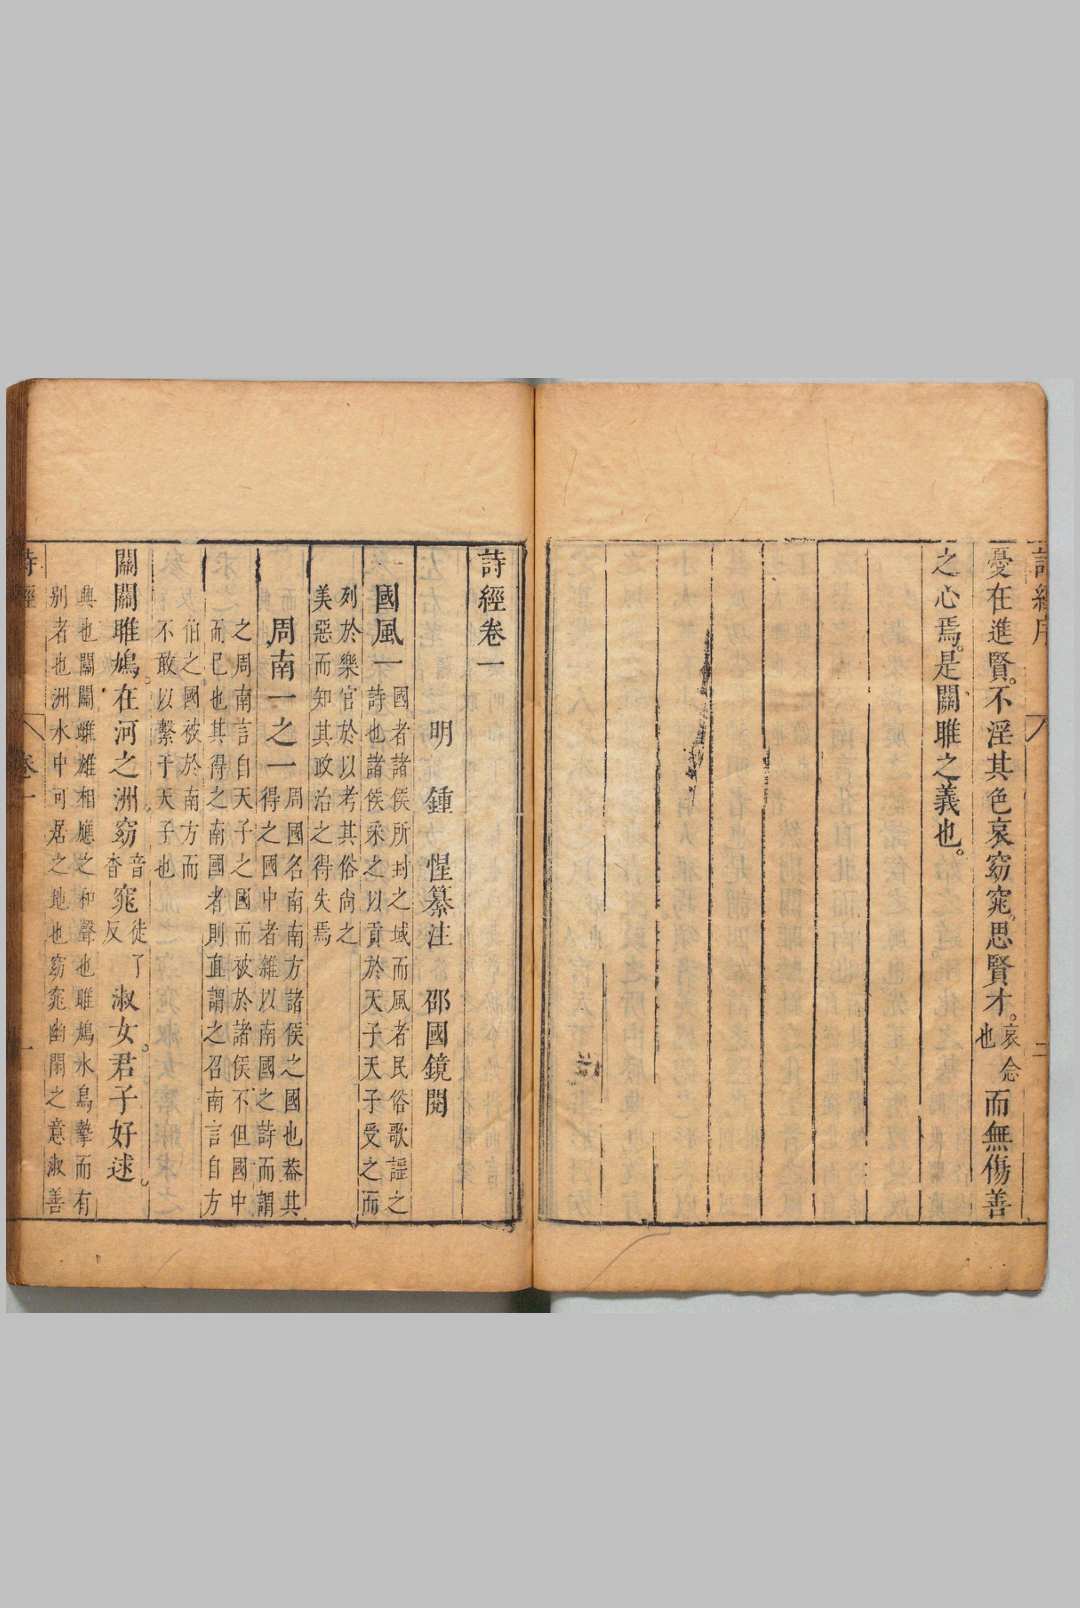 詩經序
二
憂在進賢。不淫其色。哀窈窕。思賢才。哀念也而無傷善
之心焉。是關雎之義也。
詩經卷一
明 鍾 惺纂注 邵國鏡閱
國風一 國者諸侯所封之域而風者民俗歌謡之
詩也諸侯采之以貢於天子天子受之而
列於樂官於以考其俗尚之
美惡而知其政治之得失焉
周南一之一 周國名南南方諸侯之國也葢其
得之國中者雜以南國之詩而謂
之周南言自天子之國而被於諸侯不但國中
而已也其得之南國者則直謂之召南言自方
伯之國被於南方而
不敢以繫于天子也
關關雎鳩。在河之洲窈音杳窕徒了反淑女。君子好逑。
興也關關雌雄相應之和聲也雎鳩水鳥摯而有
别者也洲水中可居之地也窈窕幽閒之意淑善
詩經
卷一
一